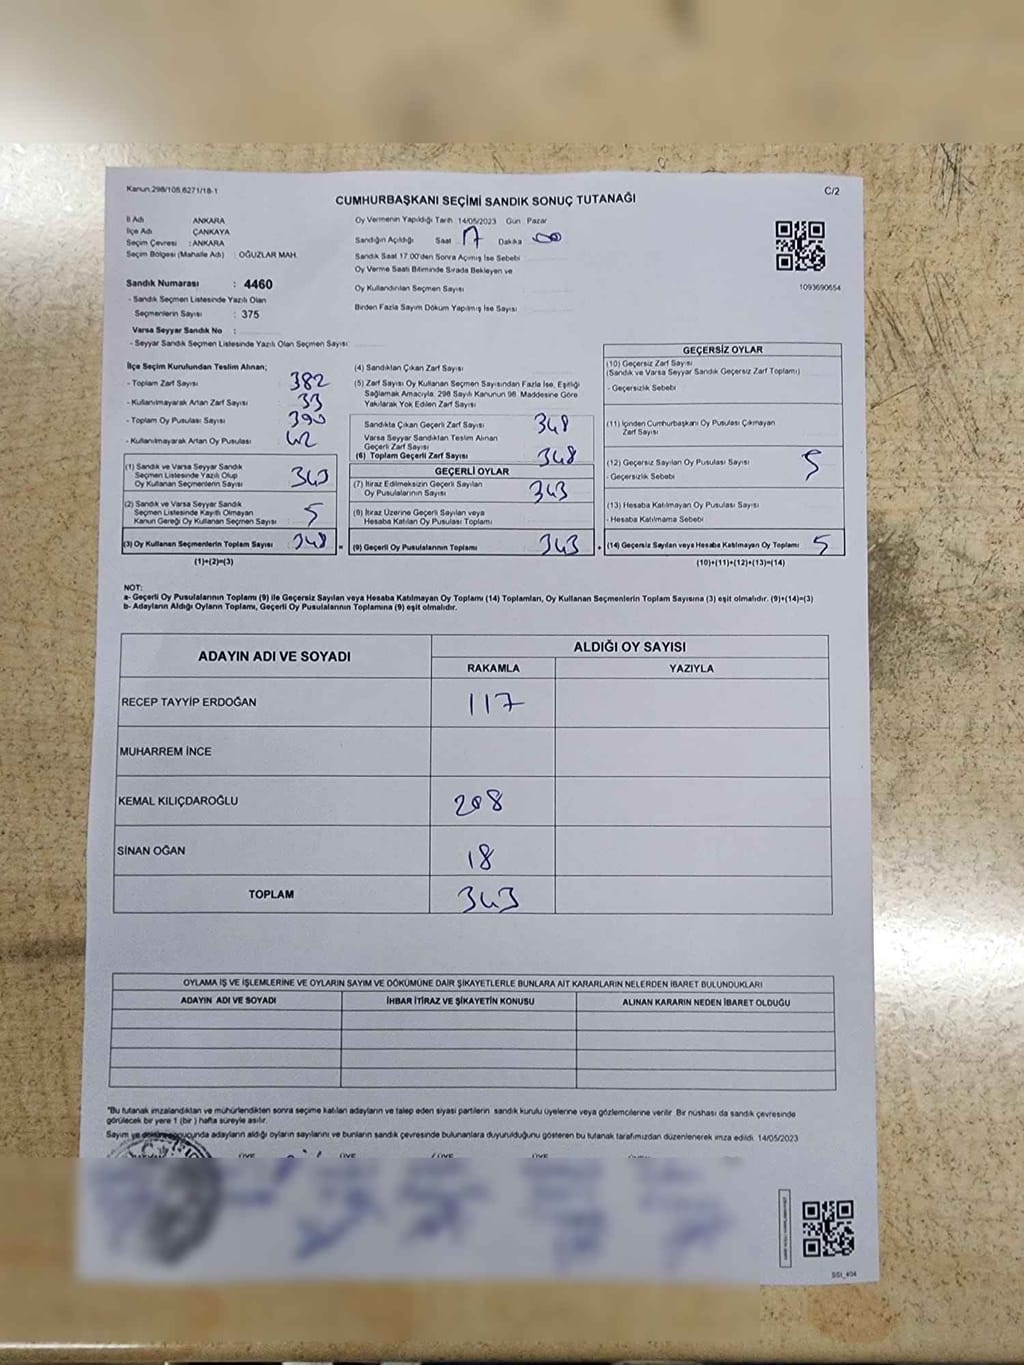 Kanun.298/105,6271/18-1
C/2
CUMHURBAŞKANI SEÇİMİ SANDIK SONUÇ TUTANAĞI
İl Adı : ANKARA
İlçe Adı : ÇANKAYA
Seçim Çevresi : ANKARA
Seçim Bölgesi (Mahalle Adı) : OĞUZLAR MAH.
Sandık Numarası : 4460
- Sandık Seçmen Listesinde Yazılı Olan
Seçmenlerin Sayısı : 375
Varsa Seyyar Sandık No :
- Seyyar Sandık Seçmen Listesinde Yazılı Olan Seçmen Sayısı:
Oy Vermenin Yapıldığı Tarih 14/05/2023 Gün : Pazar
Sandığın Açıldığı Saat 17 Dakika 00
Sandık Saat 17.00'den Sonra Açılmış İse Sebebi
Oy Verme Saati Bitiminde Sırada Bekleyen ve
Oy Kullandırılan Seçmen Sayısı
Birden Fazla Sayım Döküm Yapılmış İse Sayısı
1093690654
İlçe Seçim Kurulundan Teslim Alınan;
- Toplam Zarf Sayısı 382
- Kullanılmayarak Artan Zarf Sayısı 33
- Toplam Oy Pusulası Sayısı 390
- Kullanılmayarak Artan Oy Pusulası 42
(1) Sandık ve Varsa Seyyar Sandık
Seçmen Listesinde Yazılı Olup
Oy Kullanan Seçmenlerin Sayısı 343
(2) Sandık ve Varsa Seyyar Sandık
Seçmen Listesinde Kayıtlı Olmayan
Kanun Gereği Oy Kullanan Seçmen Sayısı 5
(3) Oy Kullanan Seçmenlerin Toplam Sayısı 348
(1)+(2)=(3)
(4) Sandıktan Çıkan Zarf Sayısı
(5) Zarf Sayısı Oy Kullanan Seçmen Sayısından Fazla İse, Eşitliği
Sağlamak Amacıyla, 298 Sayılı Kanunun 98. Maddesine Göre
Yakılarak Yok Edilen Zarf Sayısı
Sandıkta Çıkan Geçerli Zarf Sayısı 348
Varsa Seyyar Sandıktan Teslim Alınan
Geçerli Zarf Sayısı
(6) Toplam Geçerli Zarf Sayısı 348
GEÇERLİ OYLAR
(7) İtiraz Edilmeksizin Geçerli Sayılan
Oy Pusulalarının Sayısı 343
(8) İtiraz Üzerine Geçerli Sayılan veya
Hesaba Katılan Oy Pusulası Toplamı
= (9) Geçerli Oy Pusulalarının Toplamı 343
GEÇERSİZ OYLAR
(10) Geçersiz Zarf Sayısı
(Sandık ve Varsa Seyyar Sandık Geçersiz Zarf Toplamı)
- Geçersizlik Sebebi
(11) İçinden Cumhurbaşkanı Oy Pusulası Çıkmayan
Zarf Sayısı
(12) Geçersiz Sayılan Oy Pusulası Sayısı 5
- Geçersizlik Sebebi
(13) Hesaba Katılmayan Oy Pusulası Sayısı
- Hesaba Katılmama Sebebi
+ (14) Geçersiz Sayılan veya Hesaba Katılmayan Oy Toplamı 5
(10)+(11)+(12)+(13)=(14)
NOT:
a- Geçerli Oy Pusulalarının Toplamı (9) ile Geçersiz Sayılan veya Hesaba Katılmayan Oy Toplamı (14) Toplamları, Oy Kullanan Seçmenlerin Toplam Sayısına (3) eşit olmalıdır. (9)+(14)=(3)
b- Adayların Aldığı Oyların Toplamı, Geçerli Oy Pusulalarının Toplamına (9) eşit olmalıdır.
ADAYIN ADI VE SOYADI
ALDIĞI OY SAYISI
RAKAMLA YAZIYLA
RECEP TAYYİP ERDOĞAN 117
MUHARREM İNCE
KEMAL KILIÇDAROĞLU 208
SİNAN OĞAN 18
TOPLAM 343
OYLAMA İŞ VE İŞLEMLERİNE VE OYLARIN SAYIM VE DÖKÜMÜNE DAİR ŞİKAYETLERLE BUNLARA AİT KARARLARIN NELERDEN İBARET BULUNDUKLARI
ADAYIN ADI VE SOYADI İHBAR İTİRAZ VE ŞİKAYETİN KONUSU ALINAN KARARIN NEDEN İBARET OLDUĞU
"Bu tutanak imzalandıktan ve mühürlendikten sonra seçime katılan adayların ve talep eden siyasi partilerin sandık kurulu üyelerine veya gözlemcilerine verilir. Bir nüshası da sandık çevresinde
görülecek bir yere 1 (bir) hafta süreyle asılır.
Sayım ve dökümü sonucunda adayların aldığı oyların sayılarını ve bunların sandık çevresinde bulunanlara duyurulduğunu gösteren bu tutanak tarafımızdan düzenlenerek imza edildi. 14/05/2023
ÜYE ÜYE ÜYE ÜYE
SSI_404